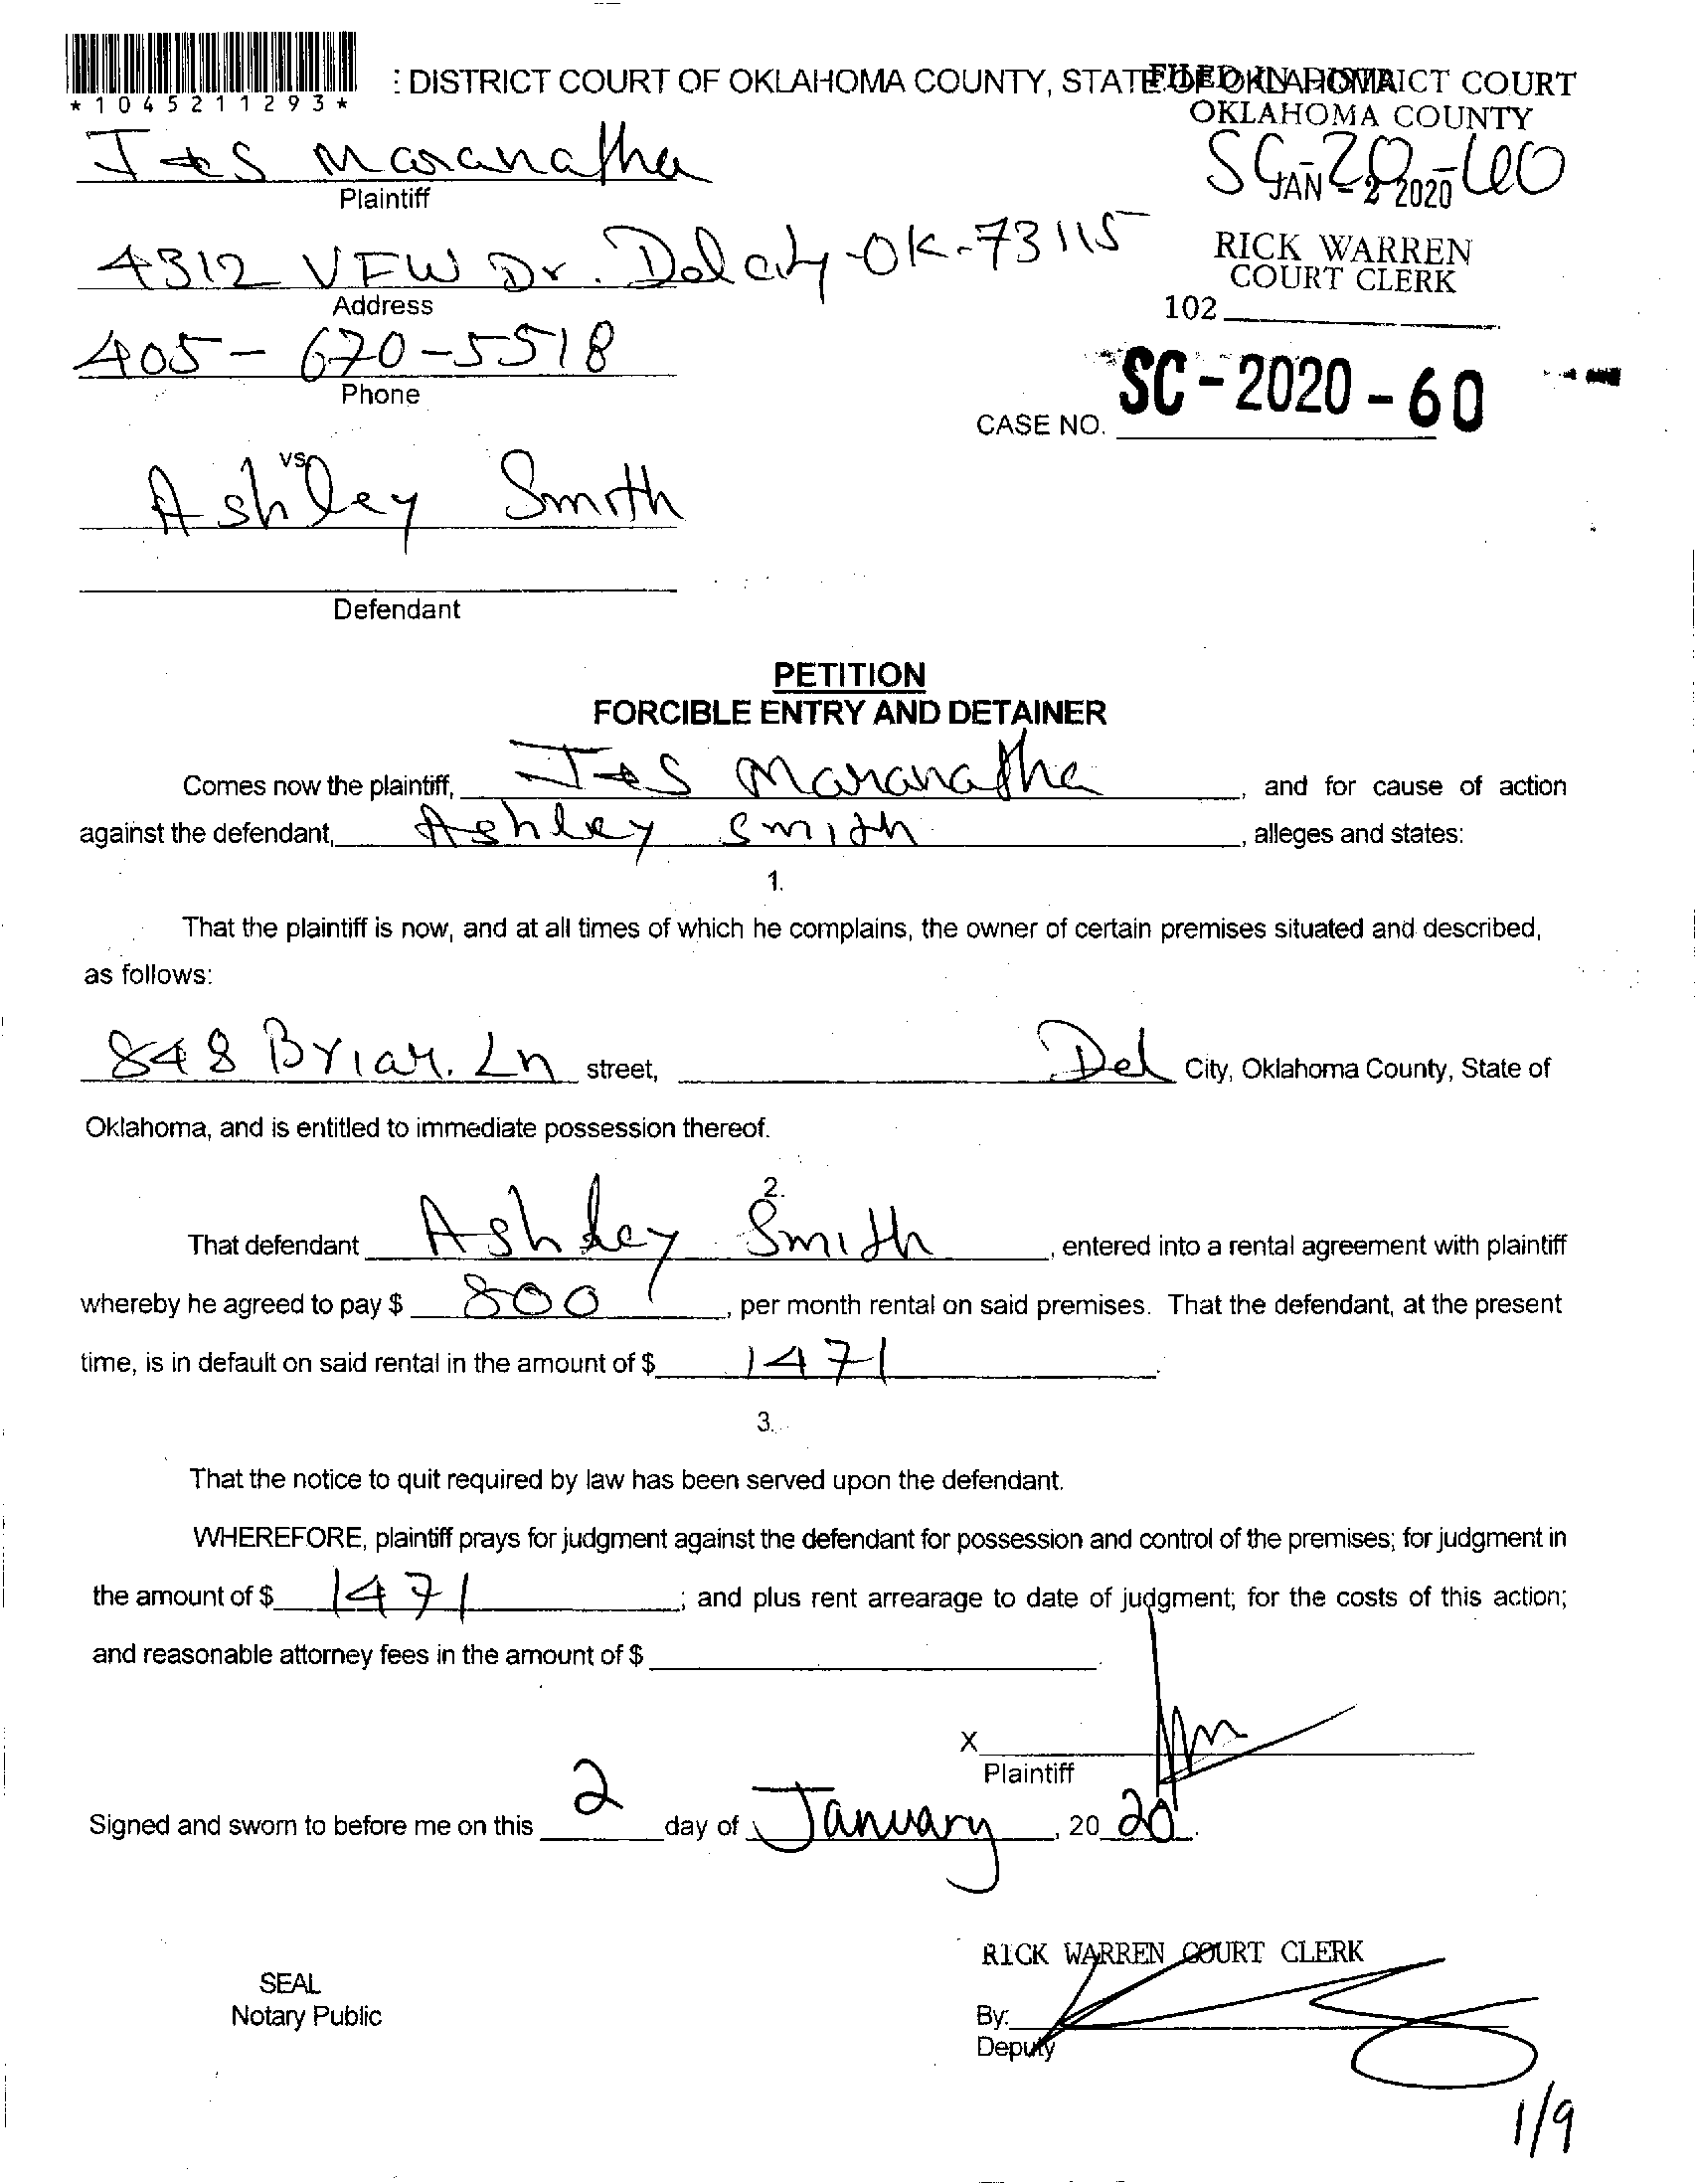 *1045211293*
: DISTRICT COURT OF OKLAHOMA COUNTY, STATE OF OKLAHOMA
FILED IN DISTRICT COURT
OKLAHOMA COUNTY
J & S Maranatha
SC-20-60
Plaintiff
JAN - 2 2020
4312 VFW Dr. Del city-OK-73115
RICK WARREN
COURT CLERK
Address
102
405-670-5518
Phone
CASE NO. SC-2020-60
vs.
Ashley Smith
Defendant
PETITION
FORCIBLE ENTRY AND DETAINER
Comes now the plaintiff, J & S Maranatha, and for cause of action
against the defendant, Ashley Smith, alleges and states:
1.
That the plaintiff is now, and at all times of which he complains, the owner of certain premises situated and described,
as follows:
848 Briar. Ln street, Del City, Oklahoma County, State of
Oklahoma, and is entitled to immediate possession thereof.
2.
That defendant Ashley Smith, entered into a rental agreement with plaintiff
whereby he agreed to pay $ 800, per month rental on said premises. That the defendant, at the present
time, is in default on said rental in the amount of $ 1471.
3.
That the notice to quit required by law has been served upon the defendant.
WHEREFORE, plaintiff prays for judgment against the defendant for possession and control of the premises; for judgment in
the amount of $ 1471; and plus rent arrearage to date of judgment; for the costs of this action;
and reasonable attorney fees in the amount of $
X
Plaintiff
Signed and sworn to before me on this 2 day of January, 20 20.
RICK WARREN COURT CLERK
SEAL
Notary Public
By:
Deputy
1/9